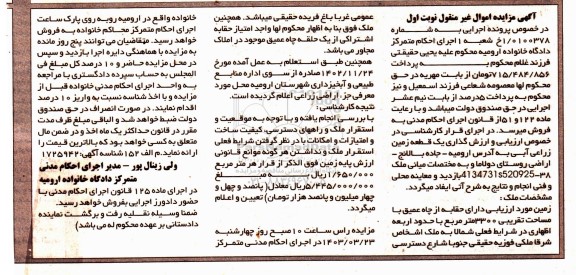 آگهی مزایده اموال غیر منقول نوبت اول
در خصوص پرونده اجرایی به شماره
۱/۰۱۰۰۳۷۸خ شعبه ۱ اجرای احکام متمرکز
دادگاه خانواده ارومیه محکوم علیه یحیی حقیقتی
فرزند غلام محکوم به پرداخت
۷۱۵/۴۸۴/۸۵۶تومان از بابت مهریه در حق
محکوم لها معصومه شعاعی فرزند اسمعیل و نیز
محکوم به پرداخت ۵درصد از بابت نیم عشر
اجرایی در حق صندوق دولت میباشد و با رعایت
ماده ۱۲۲و۵۱از قانون اجرای احکام مدنی به
فروش میرسد. در اجرای قرار کارشناسی در
خصوص ارزیابی و ارزش گذاری یک قطعه زمین
زراعی آبی به آدرس ارومیه - جاده بالانج -
اراضی روستای دولاما و به مختصات میانی ملک
4134731s520925-۳۸بازدید و معاینه محلی
و فنی انجام و نتایج به شرح آتی ایفاد میگردد.
مشخصات ملک :
زمین مورد ارزیابی دارای حقابه از چاه عمیق با
مساحت تقریبی ۳۳۰۰متر مربع با حدود اربعه
اظهاری در شرایط فعلی شمالا به ملک اشخاص
شرقا ملکی فوزیه حقیقی جنوبا شارع دسترسی
عمومی غربا باغ فریده حقیقی میباشد. همچنین
ملک فوق بنا به اظهار محکوم لها واجد امتیاز حقابه
اشتراکی از یک حلقه چاه عمیق موجود در املاک
مجاور می باشد.
همچنین طبق استعلام به عمل آمده مورخ
۱۴۰۲/۱۱/۲۴صادره از سوی اداره منابع
طبیعی و آبخیزداری شهرستان ارومیه محل مورد
معرفی جز، اراضی زراعی اعلام گردیده است.
نتیجه کارشناسی :
با بررسی انجام یافته و با توجه به موقعیت و
استقرار ملک و راههای دسترسی، کیفیت ساخت
و امتیازات و امکانات با در نظر گرفتن شرایط فعلی
استقرار ملک و نداشتن هر گونه موانع قانونی
ارزش پایه زمین فوق الذکر از قرار هر متر مربع
۱/۶۵۰/۰۰۰ریال به مبلغ
۵/۴۴۵/۰۰۰/۰۰۰ریال معادل( پانصد و چهل و
چهار میلیون و پانصد هزار تومان) تعیین و اعلام
میگردد.
مزایده راس ساعت ۱۰صبح روز چهارشنبه
۱۴۰۳/۰۳/۲۳در اجرای احکام مدنی متمرکز
خانواده واقع در ارومیه روبه روی پارک ساعت
اجرای احکام متمرکز محاکم خانواده به فروش
خواهد رسید. متقاضیان می توانند پنج روز مانده
به مزایده با هماهنگی دایره اجرا بازدید و سپس
در محل مزایده حاضر و ۱۰درصد کل مبلغ فی
المجلس به حساب سپرده دادگستری با مراجعه
به واحد اجرای احکام مدنی خانواده قبل از
مزایده و با اخذ شناسه نسبت به واریز ۱۰درصد
اقدام نمایند. در صورت انصراف در حق صندوق
دولت ضبط خواهد شد و الباقی مبلغ ظرف مدت
مقرر در قانون حداکثر یک ماه اخذ و در ضمن مال
متعلق به کسی خواهد بود که بالاترین قیمت را
ارائه نمایدم الف ۱۵۲شناسه آگهی:۱۷۲۵۹۴۲
ولی زینال پور - مدیر اجرای احکام مدنی
متمرکز دادگاه خانواده ارومیه
در اجرای ماده ۱۲۵قانون اجرای احکام مدنی با
حضور دادورز اجرایی بفروش خواهد رسید.
ضمنا وسیله نقلیه رفت و برگشت نماینده
دادستانی بر عهده محکوم له می باشد)